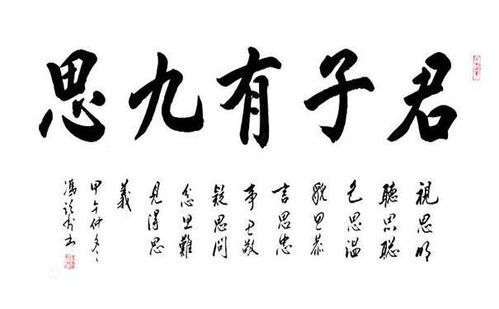 君子有九思
視思明
聽思聪
色思温
貌思恭
言思忠
事思敬
疑思問
忿思難
見得思
義
甲午仲冬